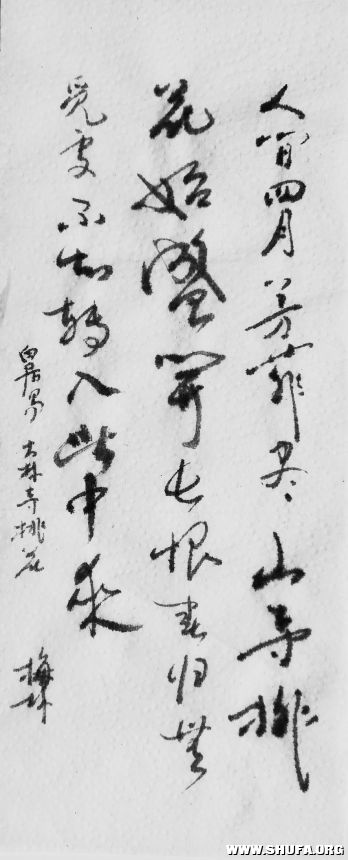 人间四月芳菲尽山寺桃
花始盛开长恨春归无
觅处不知转入此中来
白居易 大林寺桃花
WWW.SHUFA.ORG